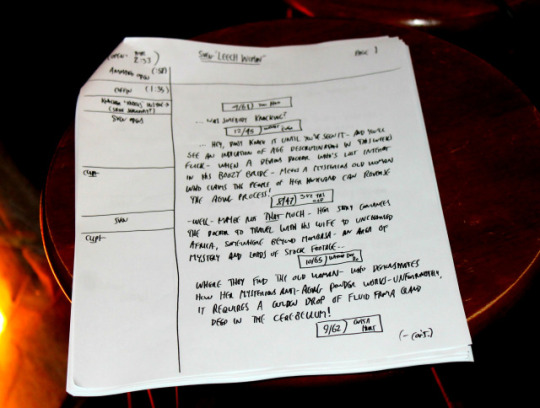 SVEN "LEECH WOMAN"
PAGE 1
2:33
OPEN
(1:35)
SVEN
CLIP
SVEN
CLIP
... WAS SOMEBODY KNOCKING?
... HEY, DON'T KNOCK IT UNTIL YOU'VE SEEN IT - AND YOU'LL
SEE AN INDICATION OF AGE DISCRIMINATION IN THIS WEEK'S
FLICK - WHEN A DEVIOUS DOCTOR, WHO'S LOST INTEREST
IN HIS BOOZY BRIDE - MEETS A MYSTERIOUS OLD WOMAN
WHO CLAIMS THE PEOPLE OF HER HOMELAND CAN REVERSE
THE AGING PROCESS!
8/47)
- WELL - MAYBE NOT THAT MUCH - HER STORY CONVINCES
THE DOCTOR TO TRAVEL WITH HIS WIFE TO UNCHARTED
AFRICA, SOMEWHERE BEYOND MOMBASA - AN AREA OF
MYSTERY AND LOADS OF STOCK FOOTAGE...
10/65)
WHERE THEY FIND THE OLD WOMAN - WHO DEMONSTRATES
HOW HER MYSTERIOUS ANTI-AGING POWDER WORKS - UNFORTUNATELY,
IT REQUIRES A GOLDEN DROP OF FLUID FROM A GLAND
DEEP IN THE CEREBELLUM!
9/62) GOTTA HURT
(- CONT.)